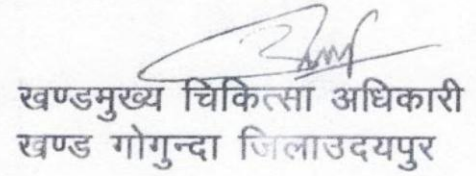 खण्डमुख्य चिकित्सा अधिकारी
खण्ड गोगुन्दा जिलाउदयपुर